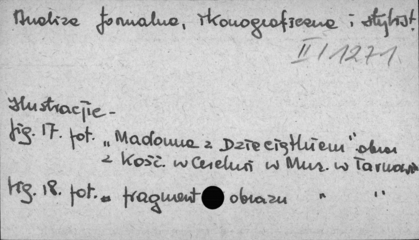 Analiza formalna, ikonograficzna i stylist.
II/1271
Ilustracje -
fig. 17. fot. „Madonna z Dzieciątkiem" obraz
z Kość. w Cerekwi w Muz. w Tarnowie
fig. 18. fot. „ fragment obrazu " "